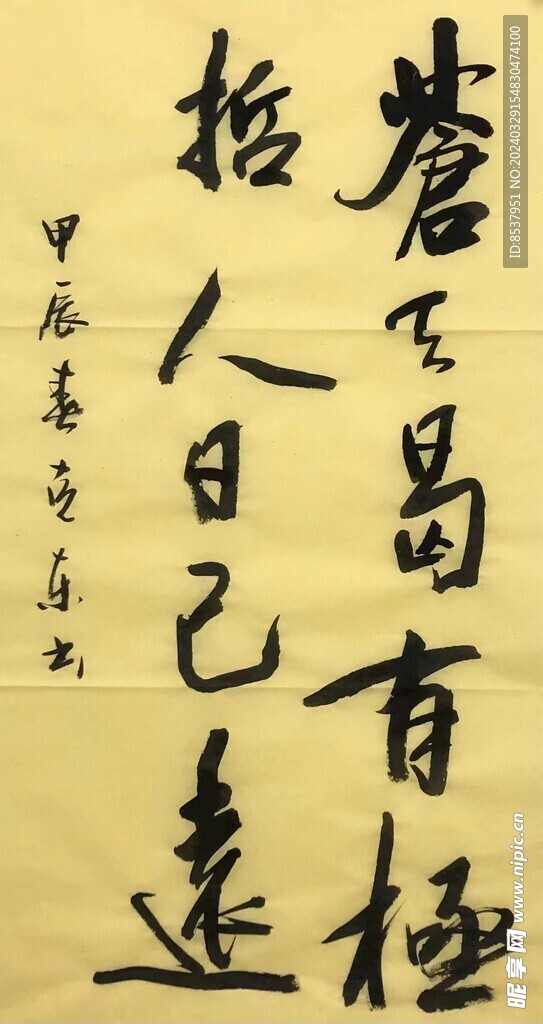 蒼天曷有極
哲人日已遠
甲辰春克东书
ID:8537951 NO:20240329154830474100
昵享网 www.nipic.cn